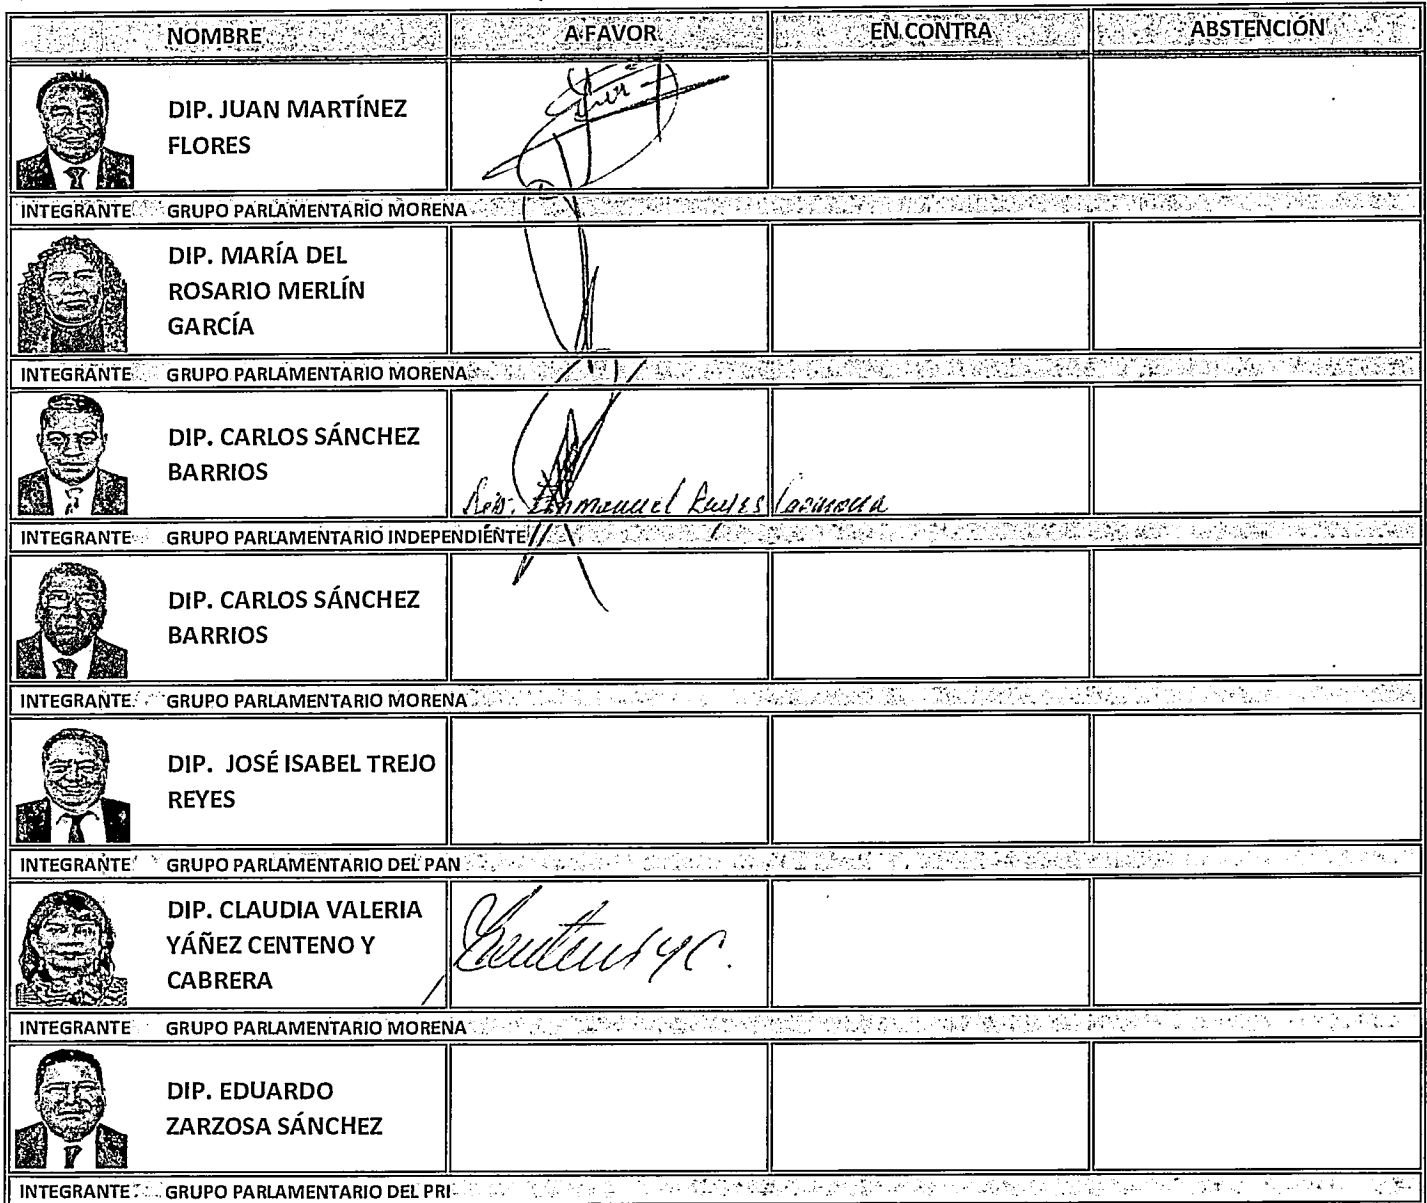 NOMBRE A FAVOR EN CONTRA ABSTENCIÓN
DIP. JUAN MARTÍNEZ
FLORES
INTEGRANTE GRUPO PARLAMENTARIO MORENA
DIP. MARÍA DEL
ROSARIO MERLÍN
GARCÍA
INTEGRANTE GRUPO PARLAMENTARIO MORENA
DIP. CARLOS SÁNCHEZ
BARRIOS
Emmanuel Reyes Carmona
INTEGRANTE GRUPO PARLAMENTARIO INDEPENDIENTE
DIP. CARLOS SÁNCHEZ
BARRIOS
INTEGRANTE GRUPO PARLAMENTARIO MORENA
DIP. JOSÉ ISABEL TREJO
REYES
INTEGRANTE GRUPO PARLAMENTARIO DEL PAN
DIP. CLAUDIA VALERIA
YÁÑEZ CENTENO Y
CABRERA
INTEGRANTE GRUPO PARLAMENTARIO MORENA
DIP. EDUARDO
ZARZOSA SÁNCHEZ
INTEGRANTE GRUPO PARLAMENTARIO DEL PRI